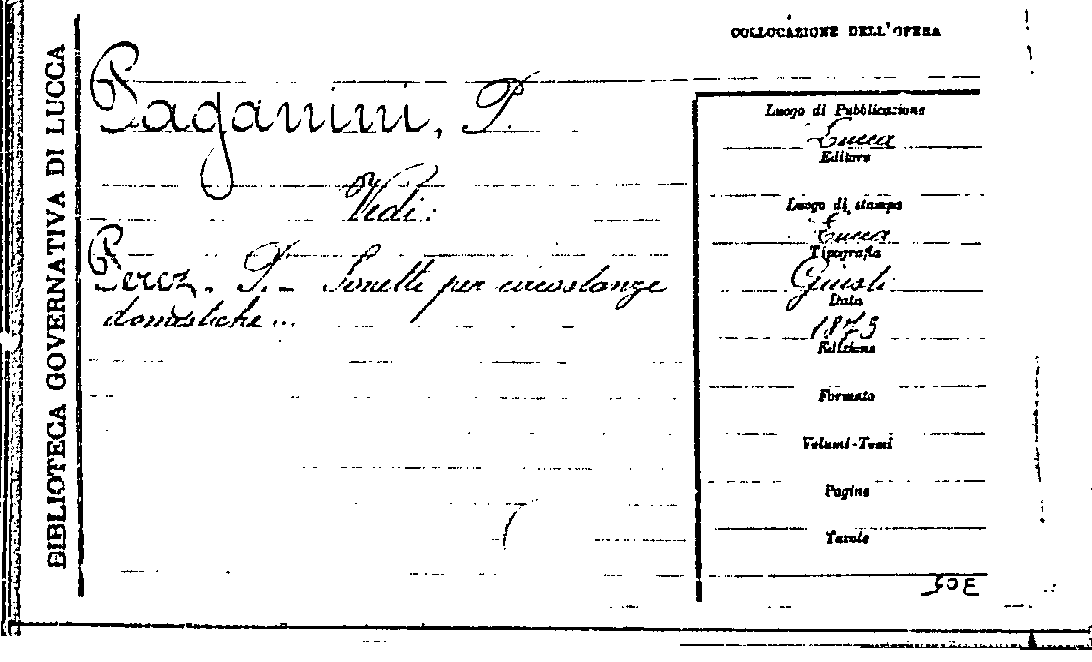 BIBLIOTECA GOVERNATIVA DI LUCCA
COLLOCAZIONE DELL'OPERA
Paganini, P.
Vedi:
Perez. P. - Sonetti per circostanze
domestiche...
Luogo di Pubblicazione
Lucca
Editore
Luogo di stampa
Lucca
Tipografia
Giusti
Data
1875
Edizione
Formato
Volumi-Tomi
Pagine
Tavole